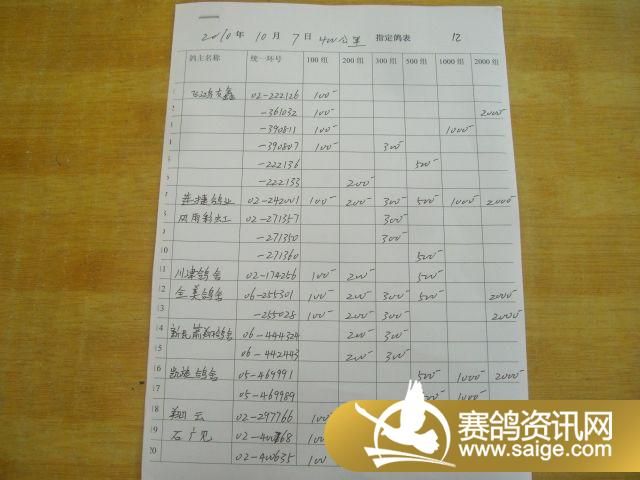 2010年 10月 7日 400公里 指定鸽表 12
鸽主名称 统一环号 100组 200组 300组 500组 1000组 2000组
02-222126 100
-361032 100 2000
-390811 100 1000
-390807 100 300
-222136 500
-222133 200
鸽业 02-242001 100 200 300 500 1000 2000
风雨彩虹 02-271357 300
-271350 300
10 -271360 500
11 川津鸽舍 02-174256 100 200 500
12 全美鸽舍 06-255301 100 200 300 500 2000
13 -255028 100 200 300 2000
14 06-444324 200 300
15 06-442443 200 300
16 凯旋鸽舍 05-469991 500 1000 2000
17 05-469989 500 1000
18 翔云 02-297766 100
19 石广见 100
20 02-400635 100
赛鸽资讯网
www.saige.com